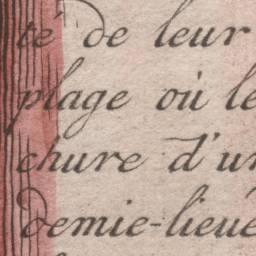 té de leur
plage où le
chure d'un
demie-lieue